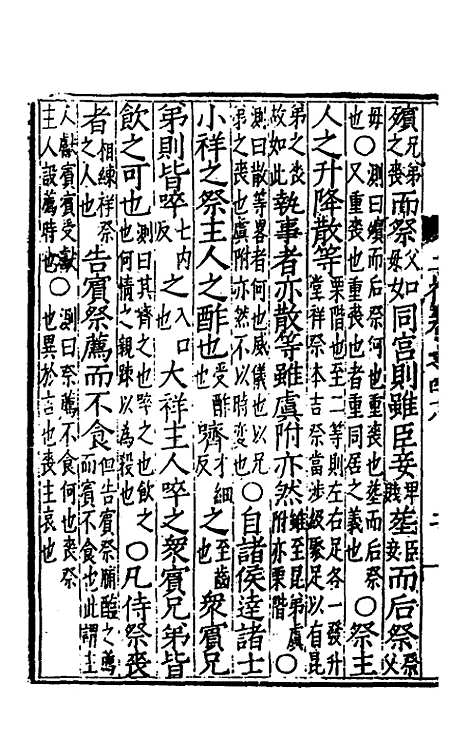 殯兄弟之喪而祭父母如同宫則雖臣妾卑賤葬臣妾而后祭祭父
毋也○測曰殯而后祭何也重喪也葬而后祭又重喪也重喪也者重同居之義也○祭主
人之升降散等栗階也至二等則左右足各一發升堂祥祭本吉祭當涉級聚足以有昆
弟之喪故如此執事者亦散等雖虞附亦然雖至昆弟虞附亦栗階○
測曰散等畧者何也威儀也以兄弟之喪也虞附亦然不以時變也○自諸侯達諸士
小祥之祭主人之酢也受酢也嚌才細反之至齒也衆賓兄
弟則皆啐七内反之入口也大祥主人啐之衆賓兄弟皆
飲之可也測曰其嚌之也啐之也飲之也何情之親踈以為殺也○凡侍祭喪
者相練祥祭之人也告賓祭薦而不食但告賓祭脯醢之薦而賓不食也此謂主
人獻賓賓受獻主人設薦時也○測曰祭薦不食何也喪祭也異於吉也喪主哀也